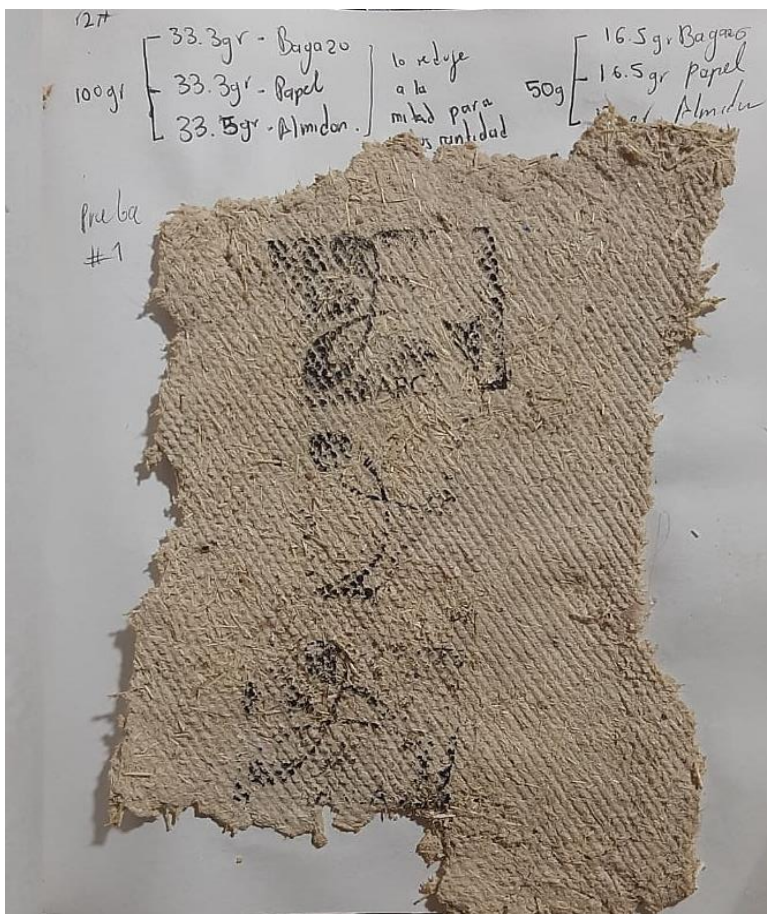 100gr
33.3gr - Bagazo
33.3gr - Papel
33.5gr - Almidon.
lo reduje
a la
mitad para
cantidad
50g
16.5 gr Bagazo
16.5 gr Papel
gr Almidon
Prueba
#1
ARCA